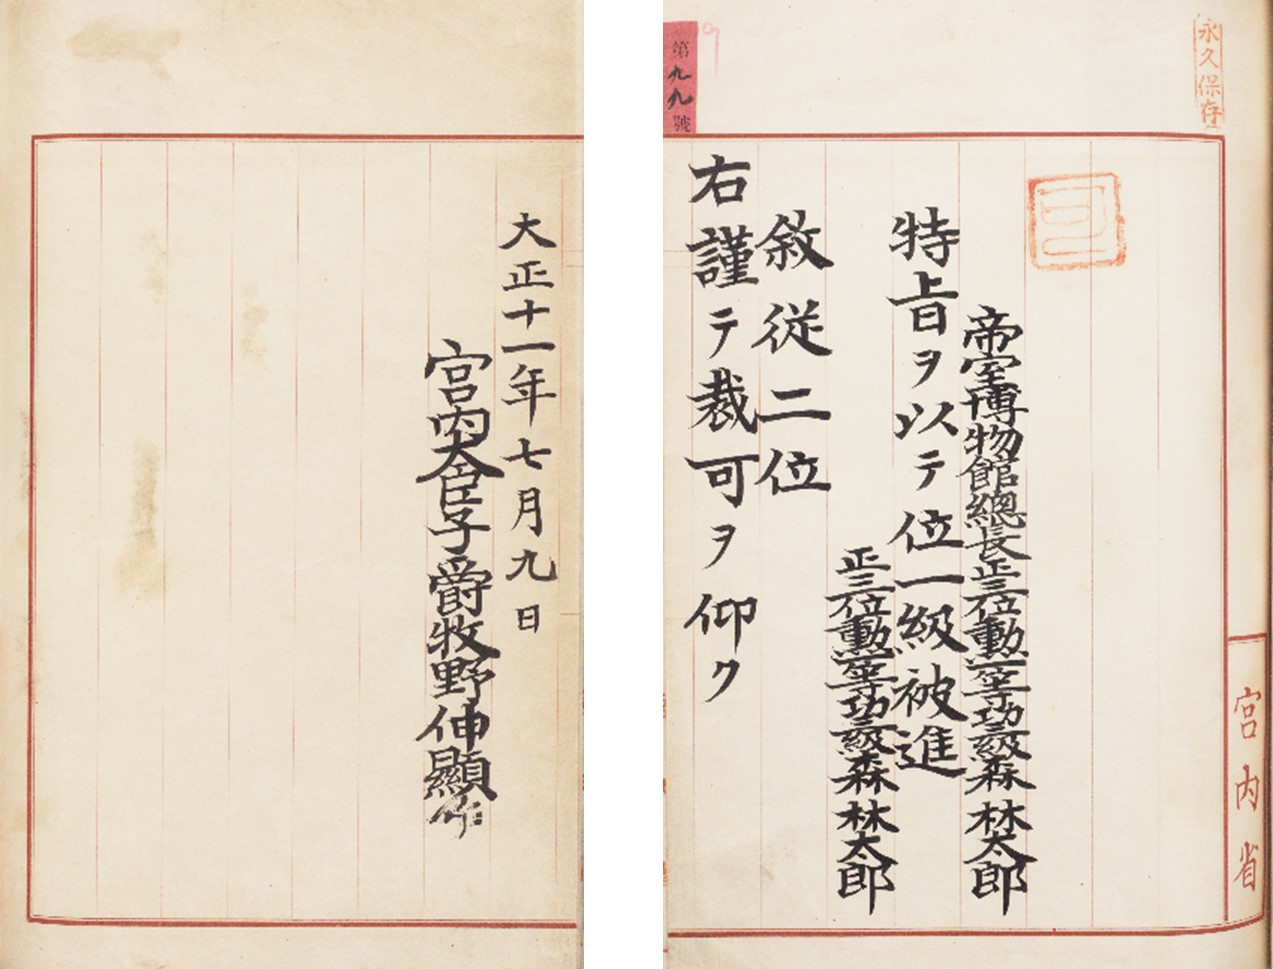 永久保存
可
宮内省
帝室博物館總長正三位勳一等功三級森林太郎
特旨ヲ以テ位一級被進
正三位勳一等功三級森林太郎
敍従二位
右謹テ裁可ヲ仰ク
第九九號
大正十一年七月九日
宮内大臣子爵牧野伸顯